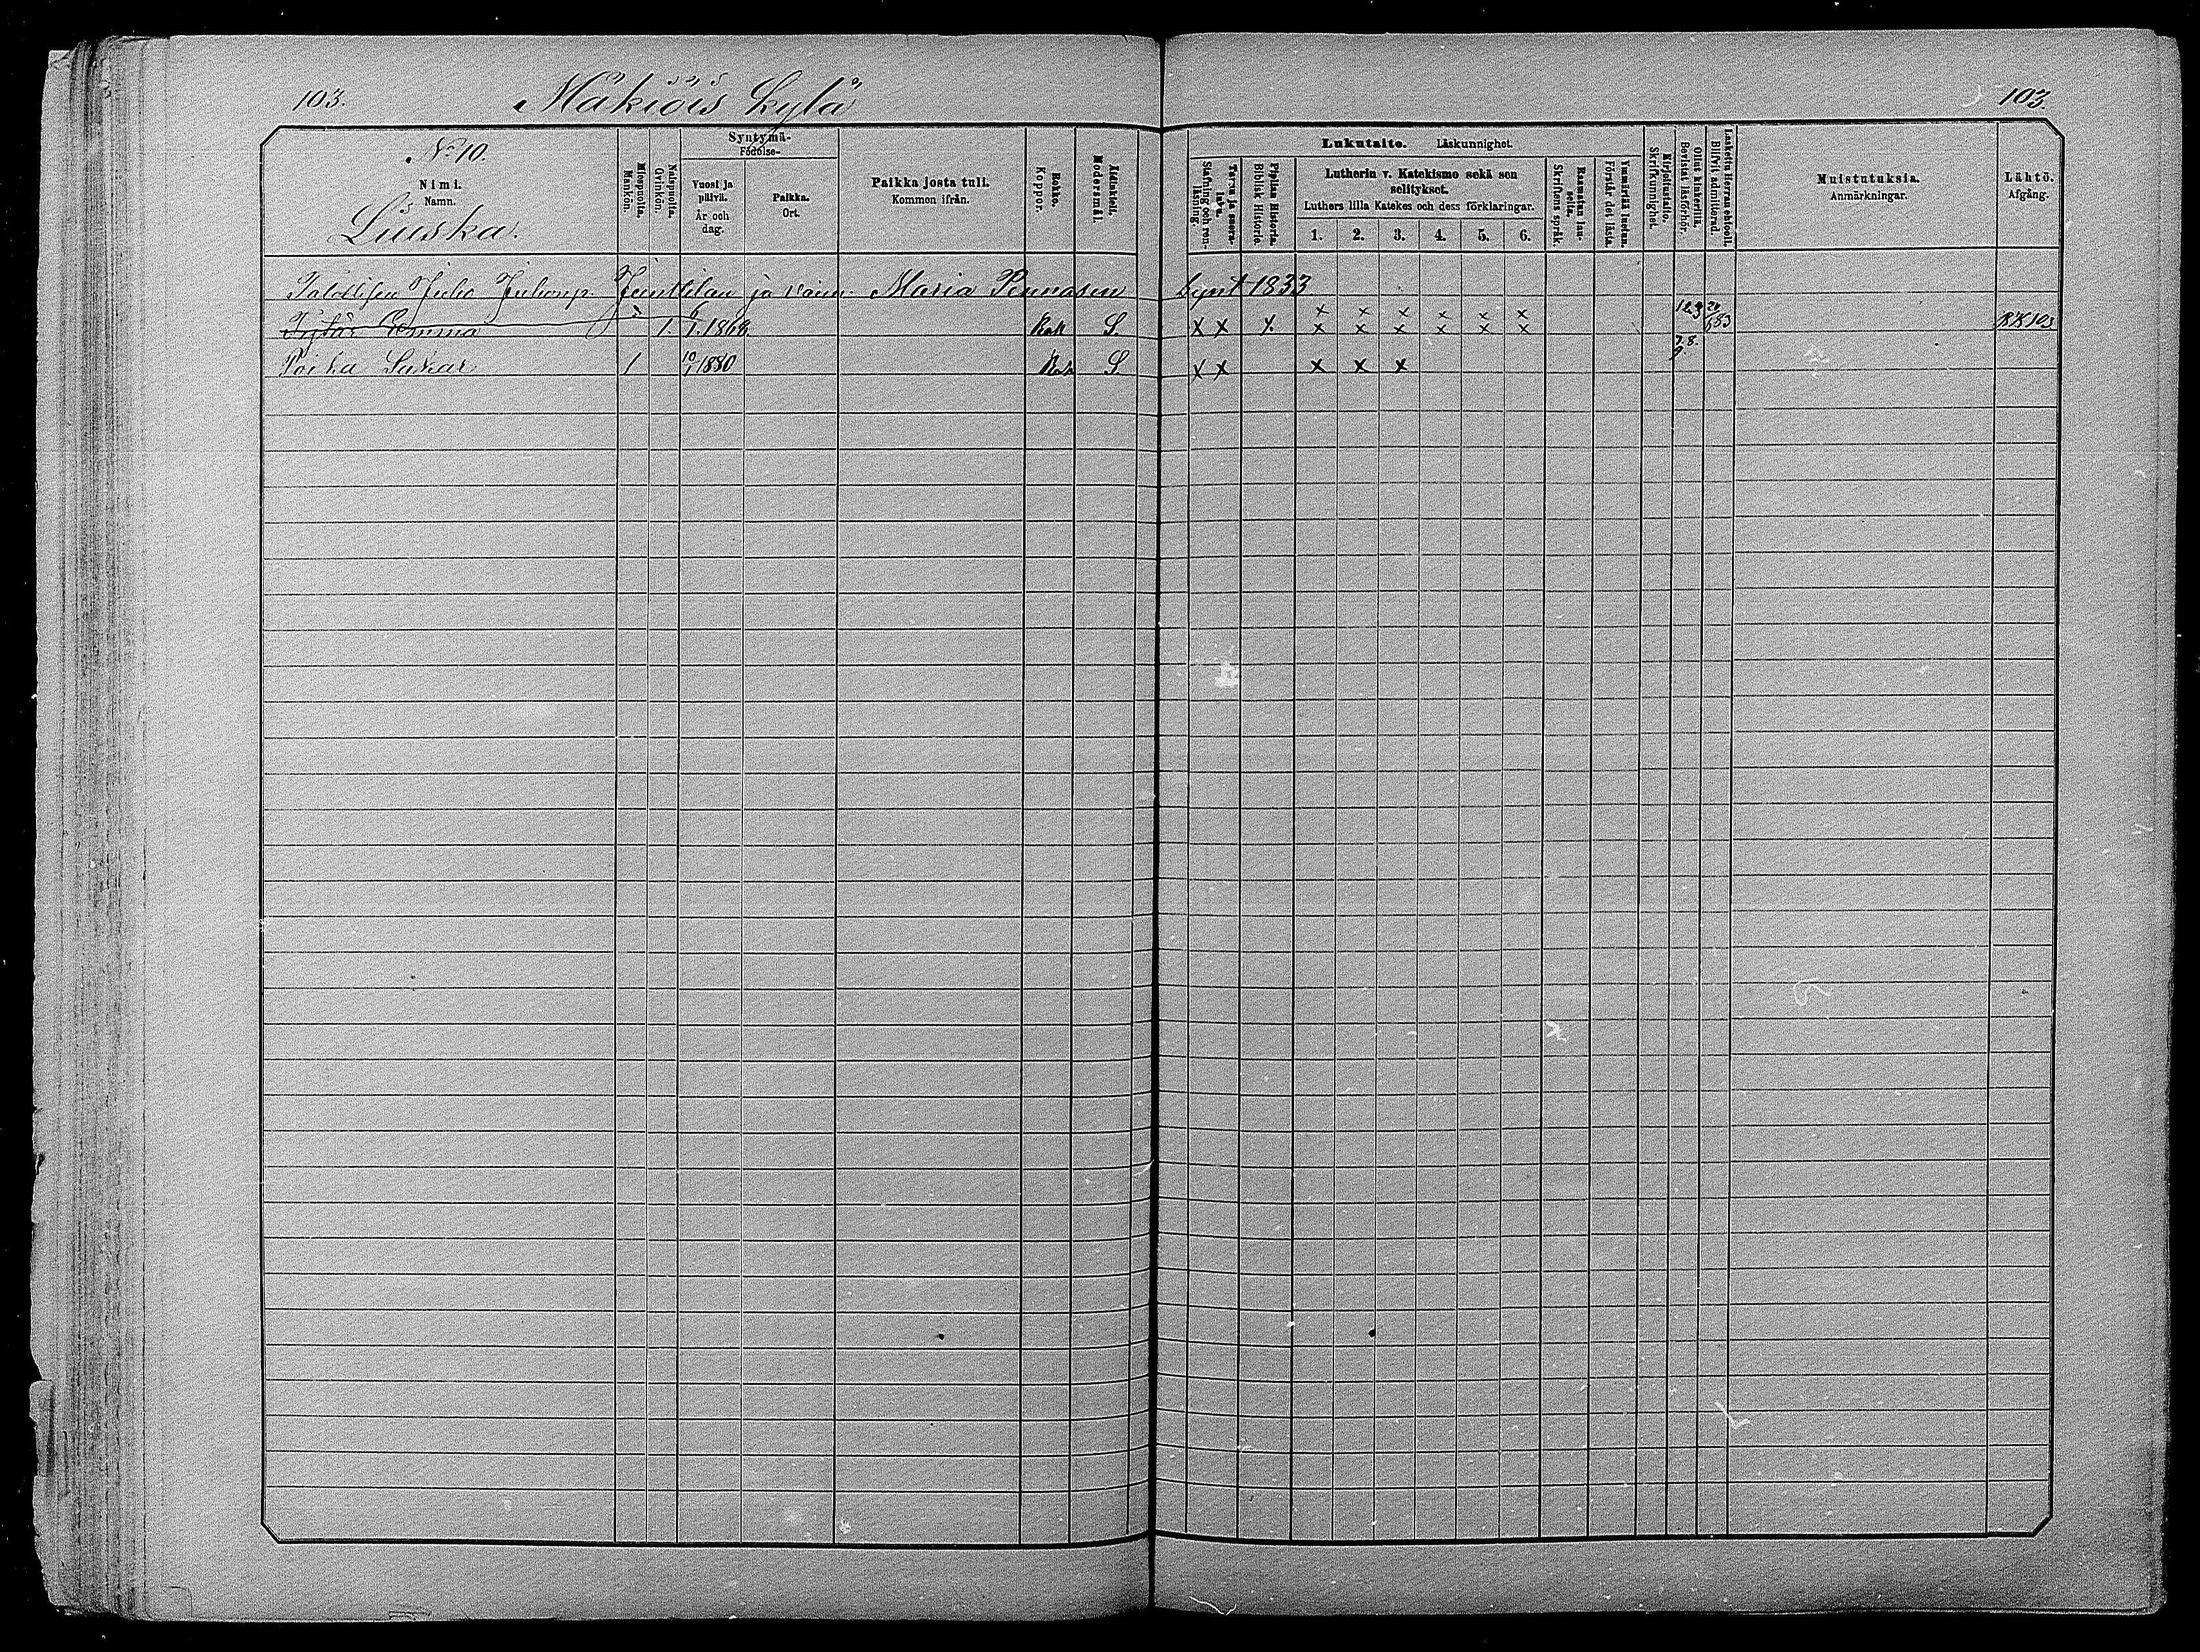 103.
Mäkiöis Kylä
103.
No 10.
Nimi.
Namn.
Liuska.
Miespuolta.
Mankön.
Naispuolta.
Qvinkön.
Syntymä-
Födelse-
Vuosi ja
päivä.
År och
dag.
Paikka.
Ort.
Paikka josta tuli.
Kommen ifrån.
Rokko.
Koppor.
Äidinkieli.
Modersmål.
Lukutaito. Läskunnighet.
Tavu ja suora-
luku.
Stafning och ren-
läsning.
Piplian Historia.
Biblisk Historie.
Lutherin v. Katekismo sekä sen
selitykset.
Luthers lilla Katekes och dess förklaringar.
1. 2. 3. 4. 5. 6.
Raamatun lau-
seita.
Skriftens språk.
Ymmärtää luetun.
Förstår det lästa.
Kirjoitustaito.
Skrifkunnighet.
Ollut kinkerillä.
Bevistat läsförhör.
Laskettu Herran ehtoolle.
Blifvit admitterad.
Muistutuksia.
Anmärkningar.
Lähtö.
Afgång.
Juho Juhonp. Junttilan ja vaim. Maria Pennasen Synt 1833
Tytär Emma 1. 1866 Rok S. x x x x x x x x x 683 RK 103
x x x x x x
7.8.
9.
Poika 1 10/1 1880 Rok S. x x x x x